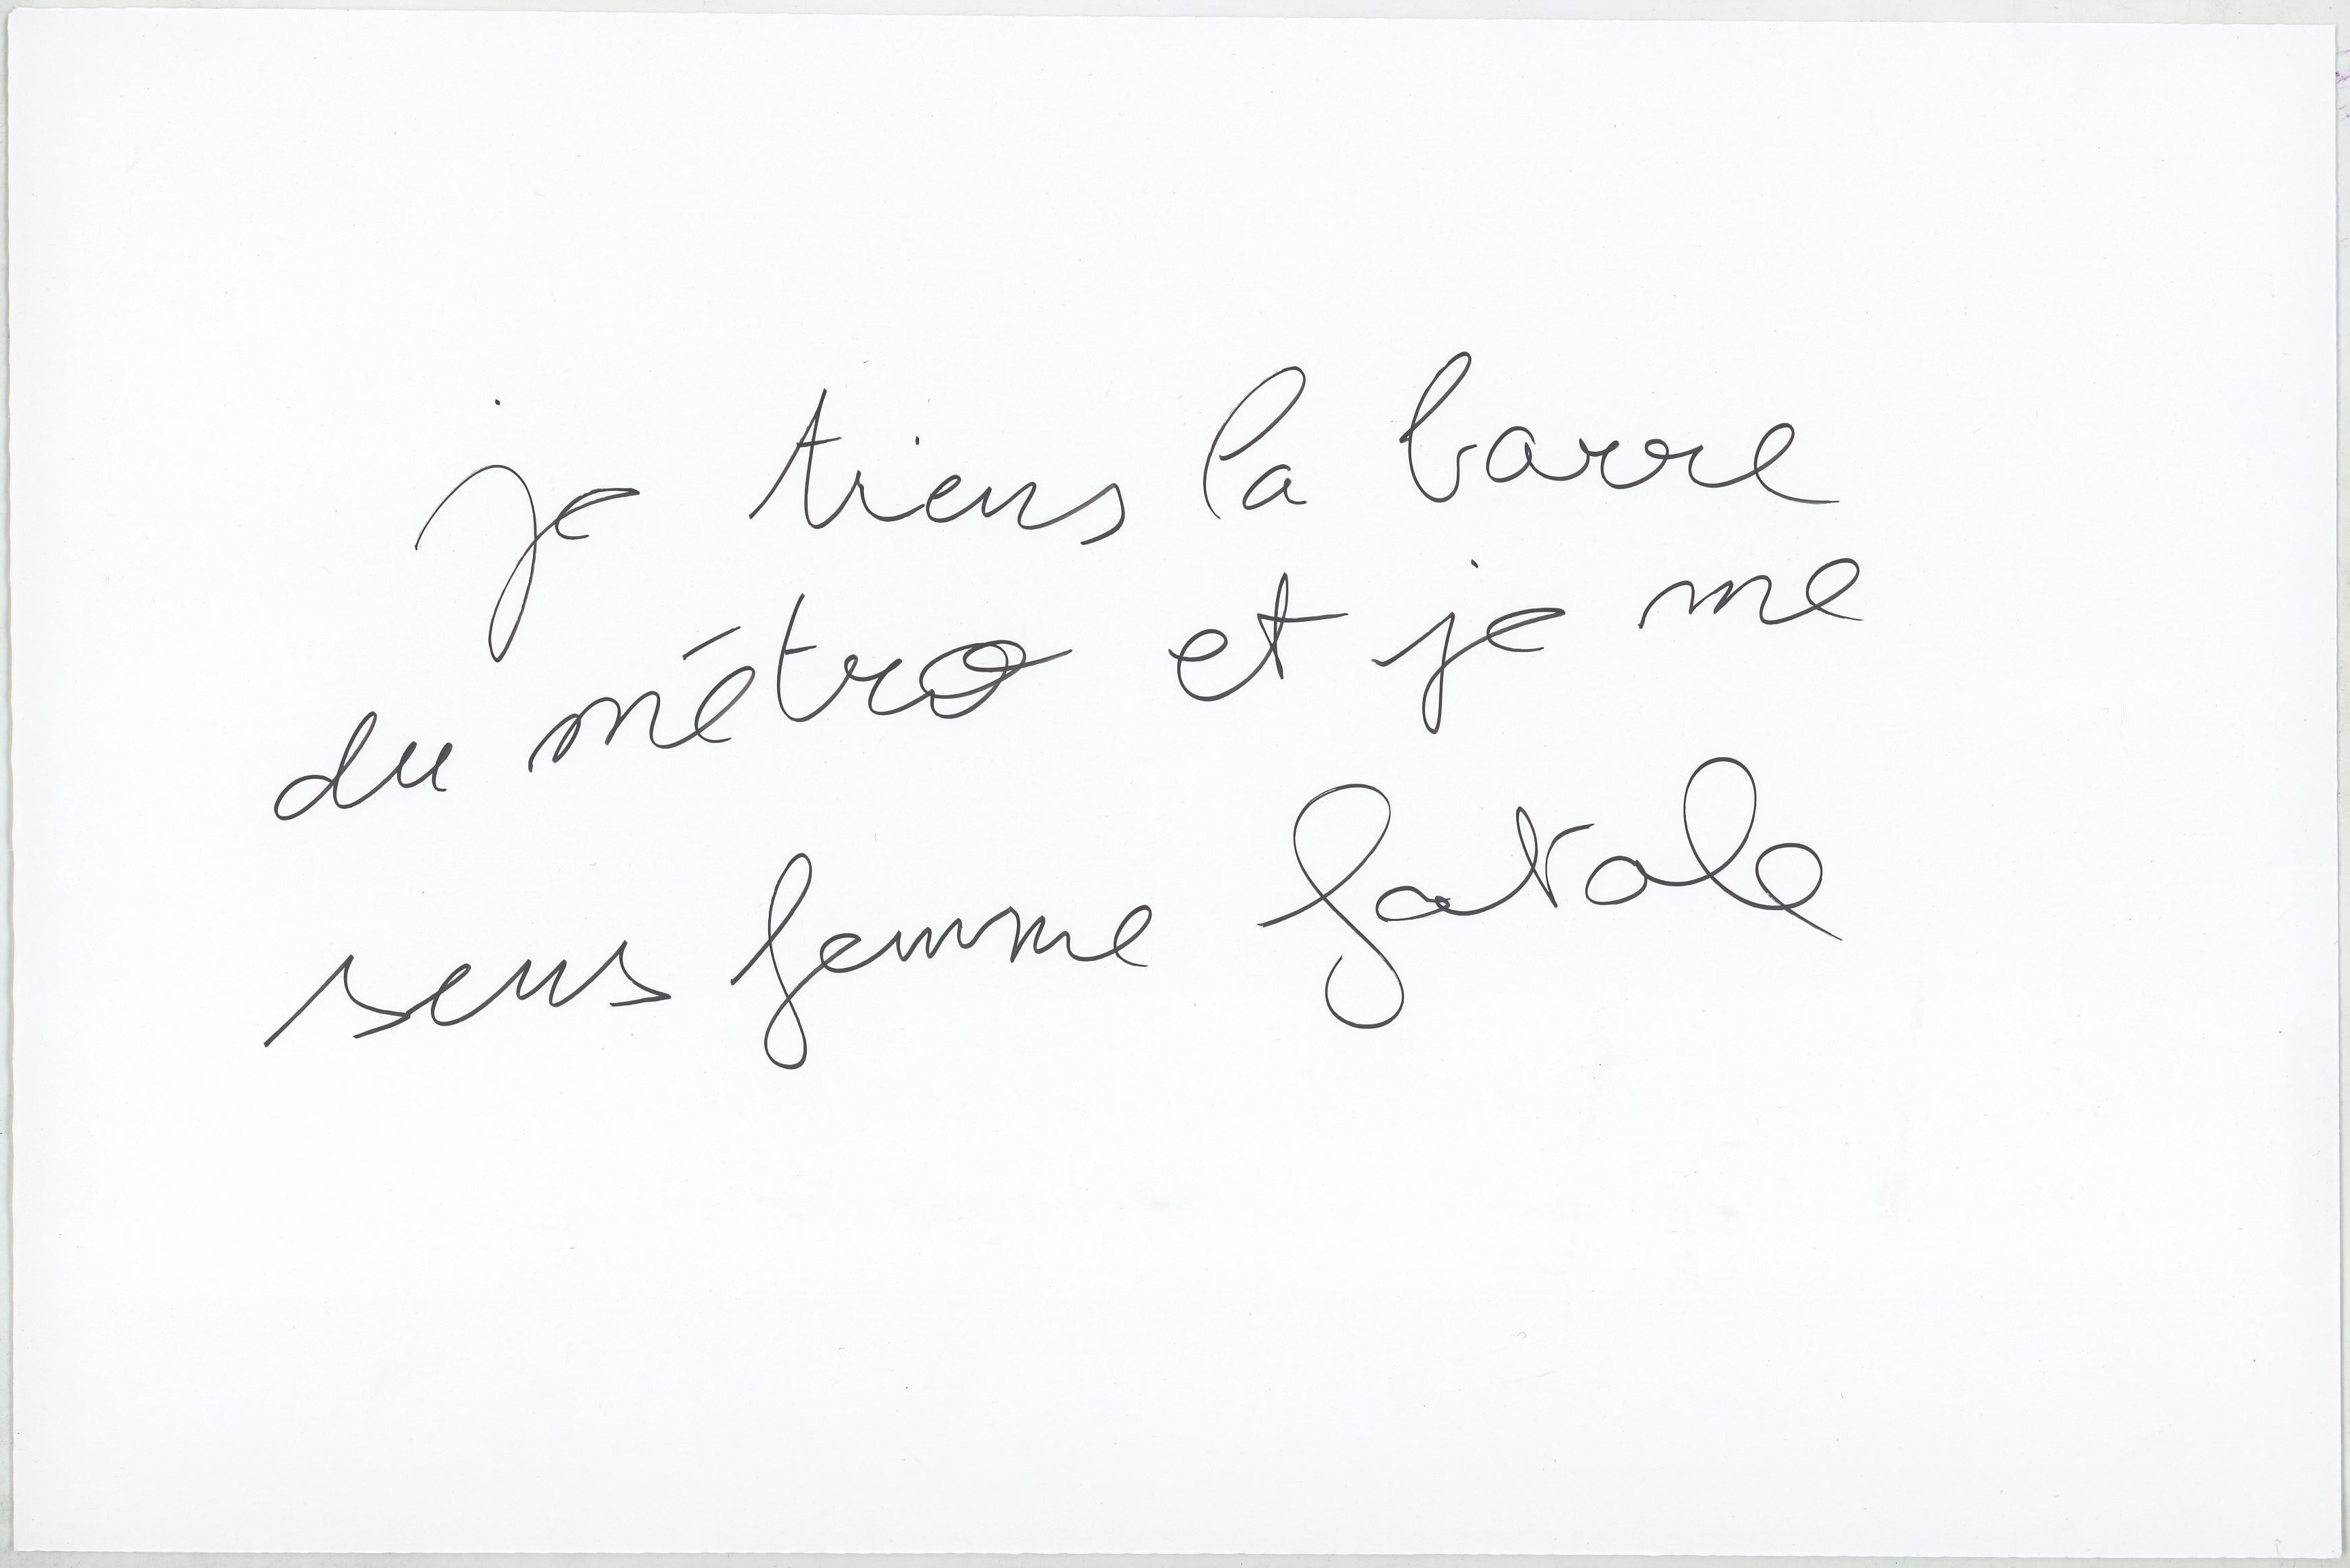 je tiens la barre
du métro et je me
sens femme fatale